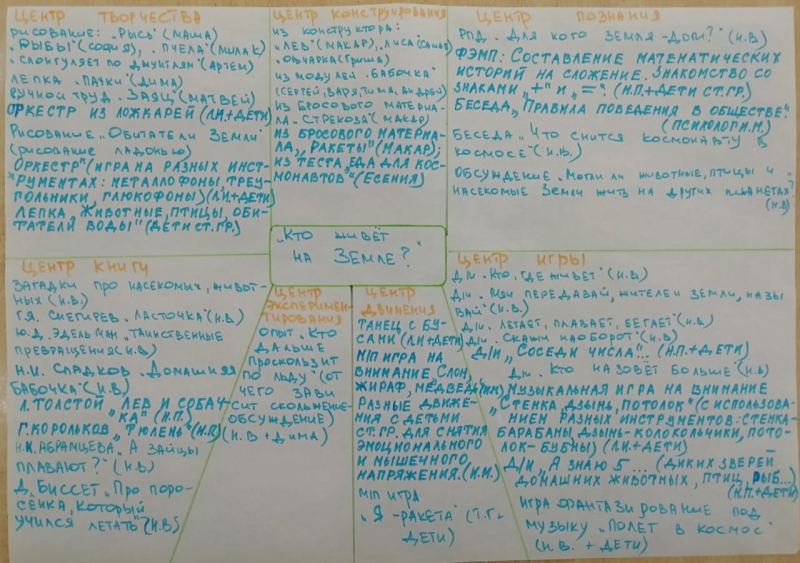 ЦЕНТР ТВОРЧЕСТВА
РИСОВАНИЕ: „РЫСЬ" (МАША)
„РЫБЫ" (СОФИЯ), „ПЧЕЛА" (МИЛАК)
„СЛОН ГУЛЯЕТ ПО ДЖУНГЛЯМ" (АРТЕМ)
ЛЕПКА „ПАУКИ" (ДИМА)
РУЧНОЙ ТРУД „ЗАЯЦ" (МАТВЕЙ)
ОРКЕСТР ИЗ ЛОЖКАРЕЙ (Л.И.+ДЕТИ)
РИСОВАНИЕ „ОБИТАТЕЛИ ЗЕМЛИ"
(РИСОВАНИЕ ЛАДОНЬЮ)
ОРКЕСТР" (ИГРА НА РАЗНЫХ ИНСТ-
РУМЕНТАХ: МЕТАЛЛОФОНЫ, ТРЕУ-
ГОЛЬНИКИ, ГЛЮКОФОНЫ) (Л.И+ДЕТИ)
ЛЕПКА „ЖИВОТНЫЕ, ПТИЦЫ, ОБИ-
ТАТЕЛИ ВОДЫ" (ДЕТИ СТ.ГР.)
ЦЕНТР КОНСТРУИРОВАНИЯ
ИЗ КОНСТРУКТОРА:
„ЛЕВ" (МАКАР), „ЛИСА" (САША)
„ОВЧАРКА" (ГРИША)
ИЗ МОДУЛЕЙ „БАБОЧКА"
(СЕРГЕЙ, ВАРЯ, ТИМА, АНДРЕЙ)
ИЗ БРОСОВОГО МАТЕРИА-
ЛА „СТРЕКОЗА" (МАКАР)
ИЗ БРОСОВОГО МАТЕРИА-
ЛА „РАКЕТЫ" (МАКАР);
ИЗ ТЕСТА „ЕДА ДЛЯ КОС-
МОНАВТОВ" (ЕСЕНИЯ)
ЦЕНТР ПОЗНАНИЯ
РПД „ДЛЯ КОГО ЗЕМЛЯ - ДОМ?" (Н.В)
ФЭМП: СОСТАВЛЕНИЕ МАТЕМАТИЧЕСКИХ
ИСТОРИЙ НА СЛОЖЕНИЕ. ЗНАКОМСТВО СО
ЗНАКАМИ „+" И „=". (Н.П+ДЕТИ СТ.ГР.)
БЕСЕДА „ПРАВИЛА ПОВЕДЕНИЯ В ОБЩЕСТВЕ"
(ПСИХОЛОГ И.М.)
БЕСЕДА „ЧТО СНИТСЯ КОСМОНАВТУ В
КОСМОСЕ" (Н.В.)
ОБСУЖДЕНИЕ „МОГЛИ ЛИ ЖИВОТНЫЕ, ПТИЦЫ И
НАСЕКОМЫЕ ЗЕМЛИ ЖИТЬ НА ДРУГИХ ПЛАНЕТАХ?"
(Н.В)
„КТО ЖИВЁТ
НА ЗЕМЛЕ?"
ЦЕНТР КНИГИ
ЗАГАДКИ ПРО НАСЕКОМЫХ, ЖИВОТ-
НЫХ (Н.В.)
Г.Я. СНЕГИРЕВ „ЛАСТОЧКА" (Н.В)
Ю.Д. ЭДЕЛЬМАН „ТАИНСТВЕННЫЕ
ПРЕВРАЩЕНИЯ (Н.В)
Н.И. СЛАДКОВ „ДОМАШНЯЯ
БАБОЧКА" (Н.В.)
Л.ТОЛСТОЙ „ЛЕВ И СОБАЧ-
КА" (Н.П.)
Г. КОРОЛЬКОВ „ТЮЛЕНЬ" (Н.П)
Н.К. АБРАМЦЕВА „А ЗАЙЦЫ
ПЛАВАЮТ?" (Н.В)
Д. БИССЕТ „ПРО ПОРО-
СЕНКА, КОТОРЫЙ
УЧИЛСЯ ЛЕТАТЬ" (Н.В)
ЦЕНТР
ЭКСПЕРИМЕН-
ТИРОВАНИЯ
ОПЫТ „КТО
ДАЛЬШЕ
ПРОСКОЛЬЗИТ
ПО ЛЬДУ" (ОТ
ЧЕГО ЗАВИ
СИТ СКОЛЬЖЕНИЕ-
ОБСУЖДЕНИЕ)
(Н.В + ДИМА)
ЦЕНТР
ДВИЖЕНИЯ
ТАНЕЦ С БУ-
САМИ (Л.И+ДЕТИ)
МП ИГРА НА
ВНИМАНИЕ „СЛОН,
ЖИРАФ, МЕДВЕДЬ"
РАЗНЫЕ ДВИЖЕ-
НИЯ С ДЕТЬМИ
СТ.ГР. ДЛЯ СНЯТИЯ
ЭМОЦИОНАЛЬНОГО
И МЫШЕЧНОГО
НАПРЯЖЕНИЯ. (И.М.)
МП ИГРА
„Я - РАКЕТА" (Т.Г.+
ДЕТИ)
ЦЕНТР ИГРЫ
Д/И „КТО, ГДЕ ЖИВЕТ" (Н.В.)
ПЕРЕДАВАЙ, ЖИТЕЛЕЙ ЗЕМЛИ, НАЗЫ
ВАЙ" (Н.В.)
Д/И „ЛЕТАЕТ, ПЛАВАЕТ, БЕГАЕТ" (Н.В)
Д/И „СКАЖИ НАОБОРОТ" (Н.В)
Д/И „СОСЕДИ ЧИСЛА"... (Н.П.+ДЕТИ)
Д/И „КТО НАЗОВЁТ БОЛЬШЕ" (Н.В)
МУЗЫКАЛЬНАЯ ИГРА НА ВНИМАНИЕ
„СТЕНКА ДЗЫНЬ, ПОТОЛОК" (С ИСПОЛЬЗОВА-
НИЕМ РАЗНЫХ ИНСТРУМЕНТОВ: СТЕНКА-
БАРАБАНЫ, ДЗЫНЬ-КОЛОКОЛЬЧИКИ, ПОТО-
ЛОК- БУБНЫ) (Л.И+ДЕТИ)
Д/И „А ЗНАЮ 5... (ДИКИХ ЗВЕРЕЙ,
ДОМАШНИХ ЖИВОТНЫХ, ПТИЦ, РЫБ...)
(Н.П+ДЕТИ)
ИГРА ФАНТАЗИРОВАНИЕ ПОД
МУЗЫКУ „ПОЛЕТ В КОСМОС"
(Н.В. + ДЕТИ)